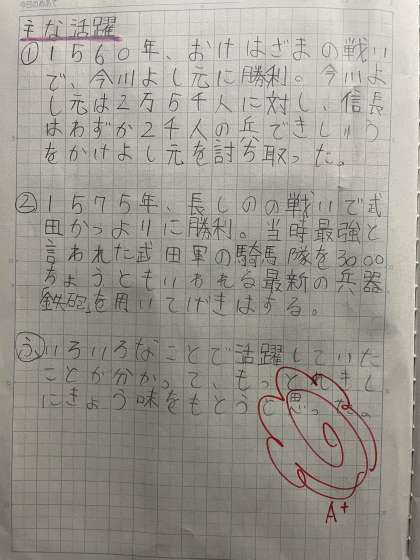 今日のめあて
主な活躍
①1560年、おけはざまの戦い
で、今川よし元に勝利。今川よ
し元は2万5千人に対し、信長
はわずか2千人の兵できしゅう
をかけよし元を討ち取った。
②1575年、長しのの戦いで武
田かつよりに勝利。当時最強と
言われた武田軍の騎馬隊を3000
ちょうともいわれる最新の兵器
「鉄砲」を用いてげきはする。
㋒いろいろなことで活躍していた
ことが分かって、もっとれきし
にきょう味をもとうと思った。
A+